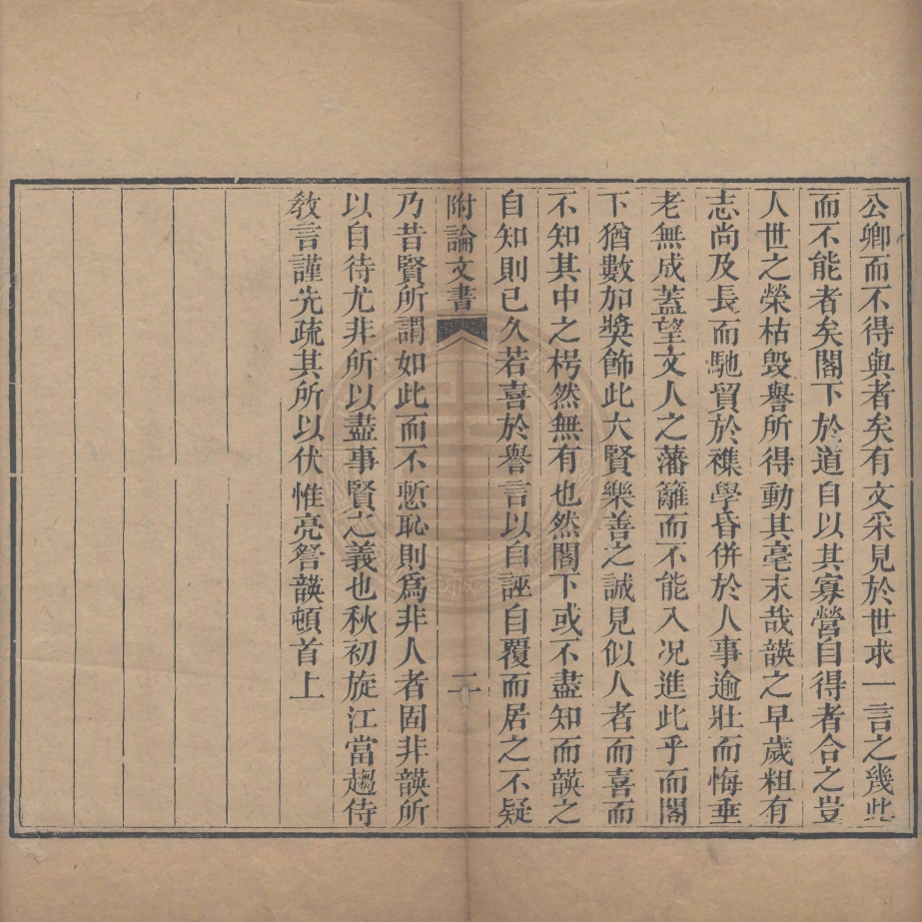 公卿而不得與者矣有文采見於世求一言之幾此
而不能者矣閣下於道自以其寡營自得者合之豈
人世之榮枯毀譽所得動其毫末哉韺之早歲粗有
志尚及長而馳貿於襍學昏併於人事逾壯而悔垂
老無成蓋望文人之藩籬而不能入况進此乎而閣
下猶數加獎飾此大賢樂善之誠見似人者而喜而
不知其中之枵然無有也然閣下或不盡知而韺之
自知則已久若喜於譽言以自誣自覆而居之不疑
附論文書 二
乃昔賢所謂如此而不慙恥則爲非人者固非韺所
以自待尤非所以盡事賢之義也秋初旋江當趨侍
敎言謹先疏其所以伏惟亮詧韺頓首上